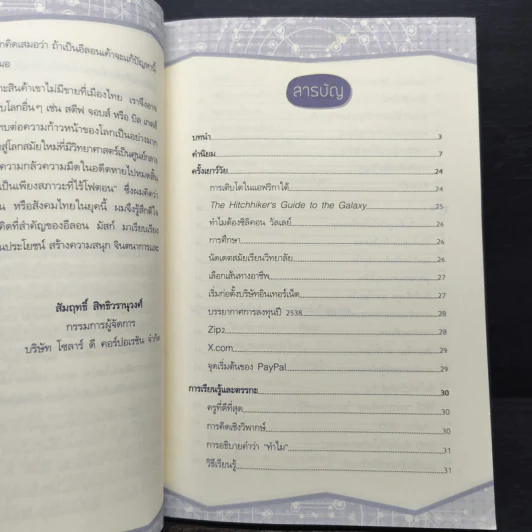 กคิดเสมอว่า ถ้าเป็นอีลอนเค้าจะแก้ปัญหานี้
มอ
าะสินค้าเขาไม่มีขายที่เมืองไทย เราจึงอาจ
บโลกอื่นๆ เช่น สตีฟ จอบส์ หรือ บิล เกตส์
บต่อความก้าวหน้าของโลกเป็นอย่างมาก
สู่โลกสมัยใหม่ที่มีวิทยาศาสตร์เป็นศูนย์กลาง
ความกลัวความมืดในอดีตหายไปหมดสิ้น
เป็นเพียงสภาวะที่ไร้โฟตอน" ซึ่งผมคิดว่า
น หรือสังคมไทยในยุคนี้ ผมจึงรู้สึกดีใจ
คิดที่สำคัญของอีลอน มัสก์ มาเรียบเรียง
นประโยชน์ สร้างความสนุก จินตนาการและ
สัมฤทธิ์ สิทธิวรานุวงศ์
กรรมการผู้จัดการ
บริษัท โซลาร์ ดี คอร์ปอเรชัน จำกัด
สารบัญ
บทนำ 3
คำนิยม 7
ครั้งเยาว์วัย 24
การเติบโตในแอฟริกาใต้ 24
The Hitchhiker's Guide to the Galaxy 25
ทำไมต้องซิลิคอน วัลเลย์ 26
การศึกษา 26
นัดเดตสมัยเรียนวิทยาลัย 26
เลือกเส้นทางอาชีพ 27
เริ่มก่อตั้งบริษัทอินเทอร์เน็ต 27
บรรยากาศการลงทุนปี 2538 28
Zip2 28
X.com 29
จุดเริ่มต้นของ PayPal 29
การเรียนรู้และตรรกะ 30
ครูที่ดีที่สุด 30
การคิดเชิงวิพากษ์ 30
การอธิบายคำว่า "ทำไม" 31
วิธีเรียนรู้ 31